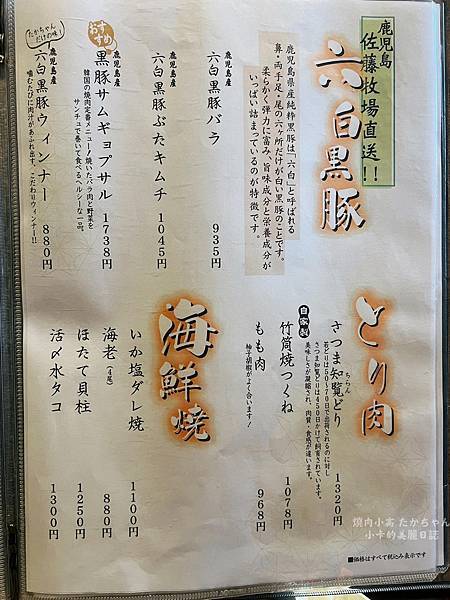 鹿児島
佐藤牧場直送!!
六白黒豚
鹿児島県産純粋黒豚は「六白」と呼ばれる
鼻・両手足・尾の六ヶ所だけが白い黒豚のことです。
柔らかく弾力に富み、旨味成分と栄養成分が
いっぱい詰まっているのが特徴です。
鹿児島産
六白黒豚バラ
935円
鹿児島産
六白黒豚ぶたキムチ
1045円
おすすめ
鹿児島産
黒豚サムギョプサル
1738円
韓国の焼肉定番メニュー!焼いたバラ肉と野菜を
サンチュで巻いて食べるヘルシーな一品。
たかちゃんだけの味!
鹿児島産
六白黒豚ウィンナー
880円
噛むたびに肉汁があふれ出す、こだわりウィンナー!!
とり肉
さつま知覧どり
ちらん
1320円
若どりは50〜70日で出荷されるのに対し
さつま知覧どりは450日かけて飼育されています。
美味しさが凝縮され、肉質・食感が違います。
自家製
竹筒焼つくね
1078円
もも肉
968円
柚子胡椒がよく合います!
海鮮焼
いか塩ダレ焼
1100円
海老(4尾)
880円
ほたて貝柱
1250円
活〆水タコ
1300円
■価格はすべて税込み表示です
燒肉小高 たかちゃん
小卡的美麗日誌